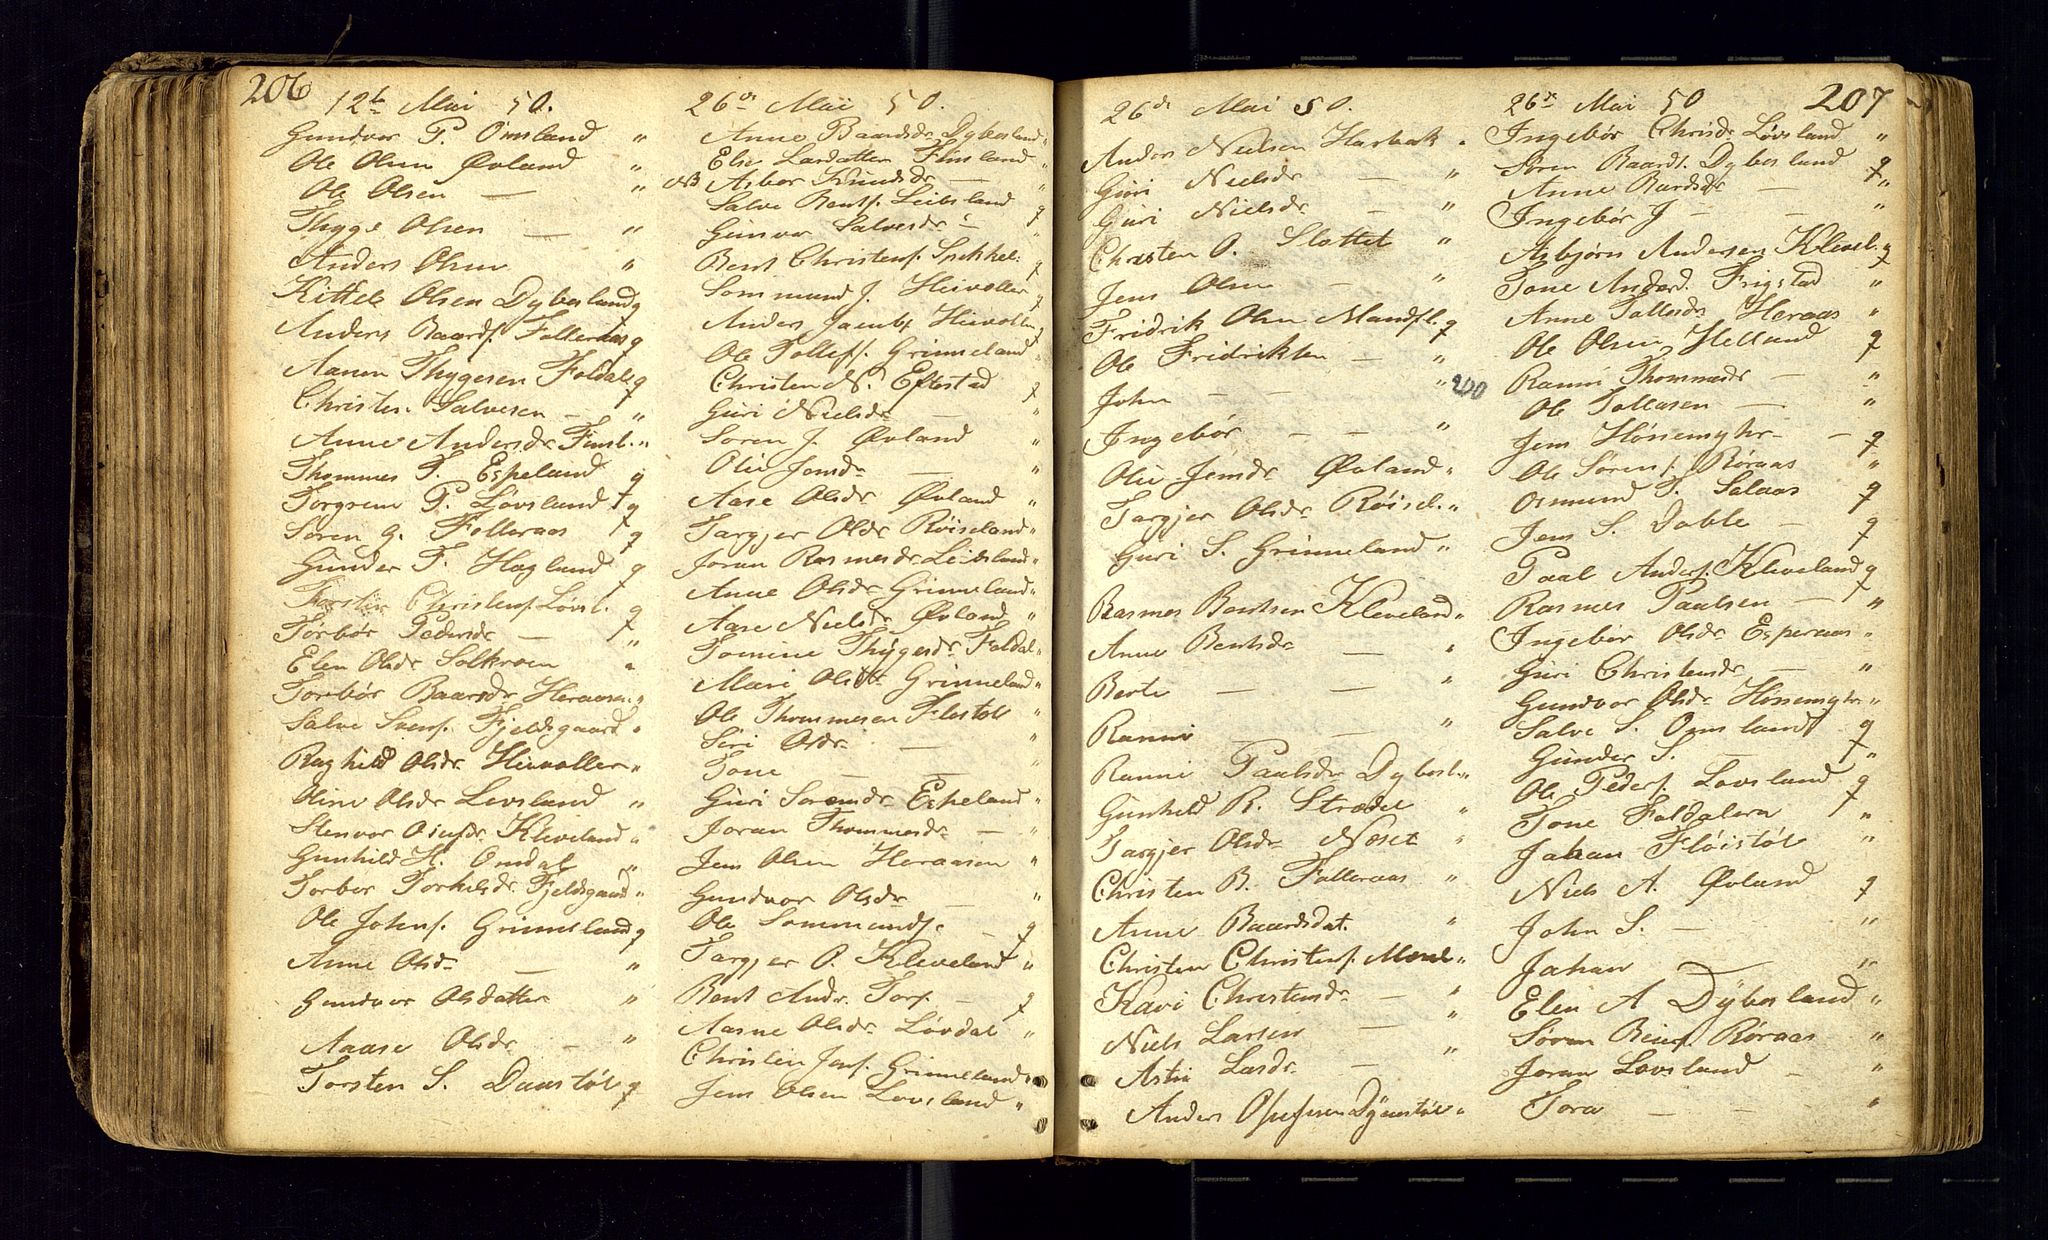 206
12te Mai 50.
Gundvor P. Omsland "
Ole Olsen Øvland "
Ole Olsen — "
Thygge Olsen — "
Anders Olsen "
Kittel Olsen Dybesland g
Anders Baards. Falleraas g
Aanen Thygesen Foldal g
Christen Salvesen — "
Anne Andersdr Finsl. "
Thommes T. Espeland g
Torgrim P. Løvsland g
Søren G. Falleraas g
Gunder T. Høgland g
Torsten Christens. Løvsl. g
Torbør Pedersdr — "
Elen Olsdr Solkroen "
Torbør Baardsdr Heraasen "
Salve Svens. Fjeldsgaard "
Raghild Olsdr Heivoller "
Oline Olsdr Levsland "
Stenvor Kleveland "
Gunhild H. Omdal "
Torbor Torkelsdr Fjeldsgaard "
Ole Johns. Grimesland g
Anne Olsdr — "
Gundvor Olsdatter "
Aaase Olsdr — "
Torsten S. Daastøl g
26de Mai 50.
Anne Baardsdr Dybesland "
Else Larsdatter Finsland "
NB Asbor Knudsdr — "
Salve Bents. Leibsland g
Gunvor Salvesdr — "
Bent Christens. Spikkel. g
Sommund J. Heivoller g
Anders Jacobs. Heivollen g
Ole Tollefs. Grimeland "
Christen N. Eftestad g
Guri Nielsdr — "
Søren J. Øvland "
Oliv Jensdr — "
Aase Olsdr Øvland "
Targjer Olsdr Røiseland "
Joran Rasmesdr Leibsland "
Anne Olsdr Grimeland "
Aase Nielsdr Øvland "
Tomine Thygesdr Foldal "
Mari Olsdtt Grimeland "
Ole Thommesen Flostøl "
Siri Olsdr — "
Tone — — "
Guri Sørensdr Espeland "
Joran Thommesdr — "
Jens Olsen Heraasen "
Gundvor Olsdr — "
Ole Sommunds. — g
Targjer O. Kleveland "
Bent Andr. Torp — g
Aasne Olsdr Løvdal "
Christen Jens. Grimeland "
Jens Olsen Lovsland "
26de Mai 50.
Anders Nielsen Harbak "
Guri Nielsdr — "
Guri Nielsdr — "
Christen O. Slottet "
Jens Olsen — "
Fridrik Olsen Mandfl. g
Ole Fridriksen — "
John — — " 200
Ingebør — — "
Oliv Jensdr Øvland "
Targjer Olsdr Røisel. "
Guri S. Grimeland "
Rasmes Bentsen Kleveland "
Anne Bentsdr — "
Berte — — "
Ranni — — "
Ranni Paulsdr Dybesl. "
Gunhild R. Strædet "
Targjer Olsdr Neset "
Christen B. Falleraas "
Anne Baardsdat. "
Christen Christens. "
Kari Christensdr — "
Niels Larsen — "
Astri Lasdr — "
Anders Dyuestøl "
207
26de Mai 50
Ingebør Chrisdr Løvsland "
Søren Baards. Dybesland g
Anne Bardsdr — "
Ingebør J — — "
Asbjørn Andersen Klevel. g
Tone Andersd. Frigstad "
Anne Tallesdr Heraas "
Ole Olsen Helland g
Ranni Thommesdr — "
Ole Tallasen — "
Jens Hønemyhr — g
Ole Sørens. Røraas "
Osmund T. Salaas g
Jens S. Doble — g
Paal Anders. Kleveland g
Rasmes Paulsen — "
Ingebør Olsdr Esperaas "
Guri Christensdr — "
Gundvor Olsdr Hønemyhr "
Salve S. Omsland g
Gunder S. — "
Ole Peders. Lovsland g
Tone Foldalen "
Johan Fløistøl "
Niels A. Øvland g
John S. — "
Johan — "
Elen A Dybesland "
Søren Røraas "
Joran Lovsland — "
Tora — — "